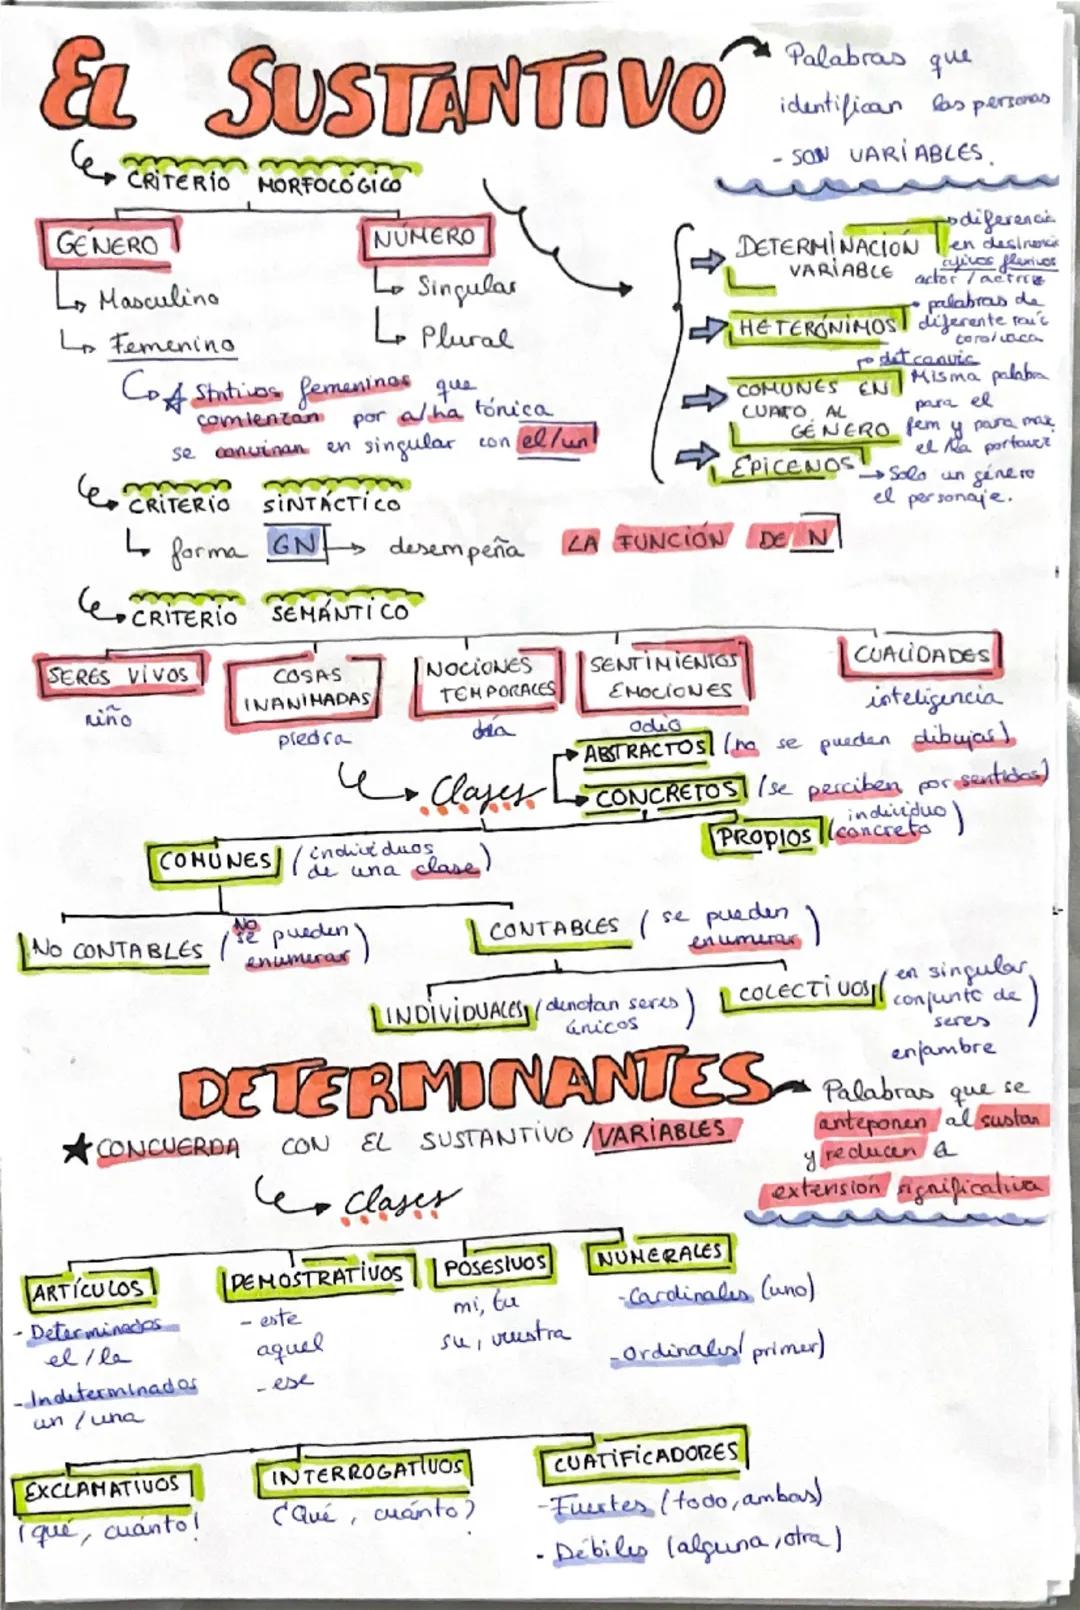 EL SUSTANTIVO
Palabras que
identifican las personas
- SON VARIABLES.
CRITERIO MORFOLÓGICO
GÉNERO
Masculino
Femenino
NÚMERO
Singular
Plural
Stntivos femeninos que
comienzan por a/ha tónica
se convinan en singular con el/un
DETERMINACIÓN
VARIABLE
diferencia
en desinencia
afivos flexivos
actor / actriz
HETERÓNIMOS
palabras de
diferente raíz
toro/vaca
COMUNES EN
CUATO AL
GÉNERO
det canvia
Misma palabra
para el
fem y para mas
el/la portavoz
EPICENOS
Solo un género
el personaje.
CRITERIO SINTÁCTICO
forma GN desempeña LA FUNCIÓN DE N
CRITERIO SEMÁNTICO
SERES VIVOS
niño
COSAS
INANIMADAS
piedra
NOCIONES
TEMPORALES
día
SENTIMIENTOS
EMOCIONES
odio
CUALIDADES
inteligencia
Clases
ABSTRACTOS (no se pueden dibujar)
CONCRETOS (se perciben por sentidos)
COMUNES (individuos
de una clase)
PROPIOS (individuo
concreto)
NO CONTABLES (No
se pueden
enumerar)
CONTABLES (se pueden
enumerar)
INDIVIDUALES (denotan seres
únicos)
COLECTIVOS (en singular
conjunto de
seres
enjambre
DETERMINANTES
Palabras que se
anteponen al sustan
y reducen a
extensión significativa
CONCUERDA CON EL SUSTANTIVO / VARIABLES
Clases
ARTÍCULOS
- Determinados
el / la
- Indeterminados
un / una
DEMOSTRATIVOS
- este
aquel
- ese
POSESIVOS
mi, tu
su, vuestra
NUMERALES
- Cardinales (uno)
- Ordinales (primer)
EXCLAMATIVOS
¡qué, cuánto!
INTERROGATIVOS
¿Qué, cuánto?
CUATIFICADORES
- Fuertes (todo, ambas)
- Débiles (alguna, otra)